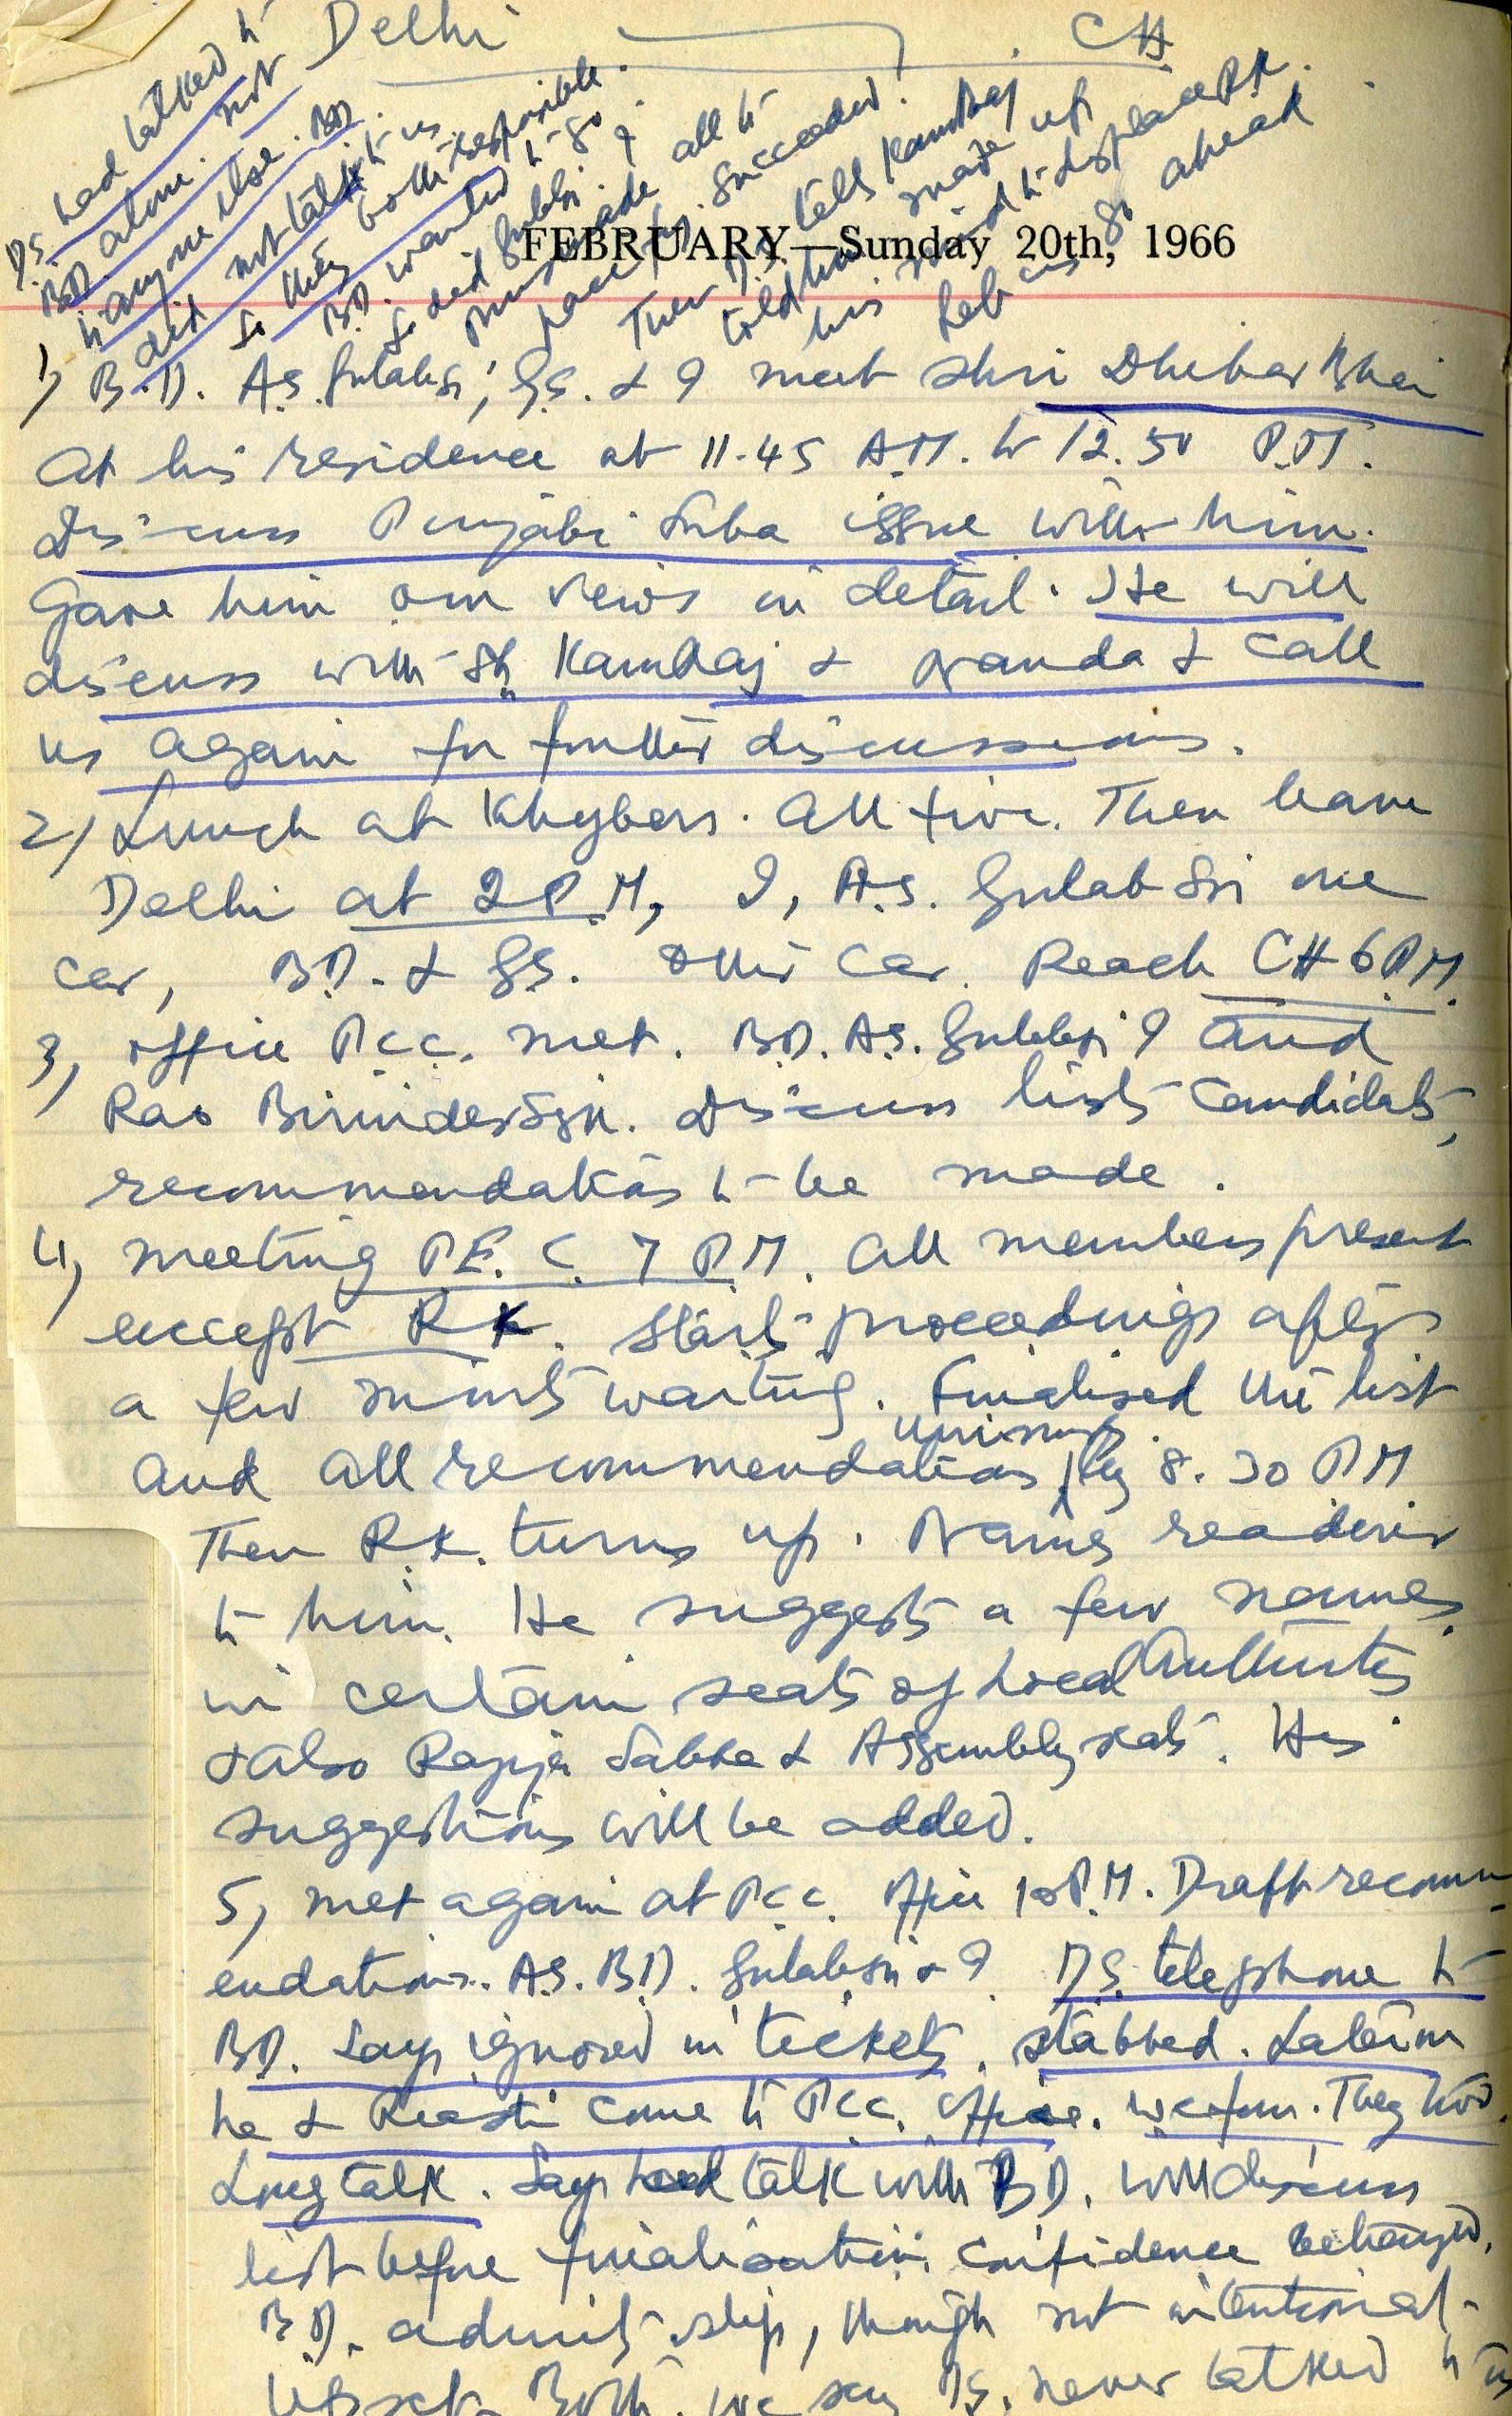 Delhi CH
D.S. had talked to
BD alone. not
to anyone else. BD.
did not talk to us.
So they both responsible.
B.D. wanted to go &
so did Gulabsi.
persuade all to
pacify. Succeeded!
Then D.S. tells KamRaj
told him made up
his mind to displace RK.
Let us go ahead
FEBRUARY—Sunday 20th, 1966
1) B.D. A.S. Gulabsi, G.S. & I meet Shri Dhebar Bhai
at his residence at 11.45 A.M. to 12.50 P.M.
Discuss Punjabi Suba issue with him.
Gave him our views in detail. He will
discuss with Sh KamRaj & Nanda & call
us again for further discussions.
2) Lunch at Khybers. All five. Then leave
Delhi at 2 P.M, I, A.S. Gulab Sri one
car, B.D. & G.S. other car. Reach CH 6 P.M.
3) office P.C.C. met. B.D. A.S. Gulabsi I and
Rao BirinderSgh. Discuss lists candidates,
recommendations to be made.
4) meeting P.E.C. 7 P.M. All members present
except RK. Starts proceedings after
a few minuts waiting. Finalised the list
unimously
and all recommendations by 8.30 PM
Then R.K. turns up. Names readover
to him. He suggests a few names
in certain seats of Local Authorites
& also Rajya Sabha & Assembly seats. His
suggestions will be added.
5) met again at P.C.C. office 10 P.M. Draft recomm-
endations. A.S. B.D. Gulabsi & I. D.S. telephone to
BD. Says ignored in tickets, stabbed. Later on
he & Reasti come to P.C.C. office. We four. They two.
Long talk. Says had talk with BD. will discuss
list before finalisation. Confidence betrayed.
B.D. admits slip, though not intentional.
Upset. Both. we say D.S. never talked to us